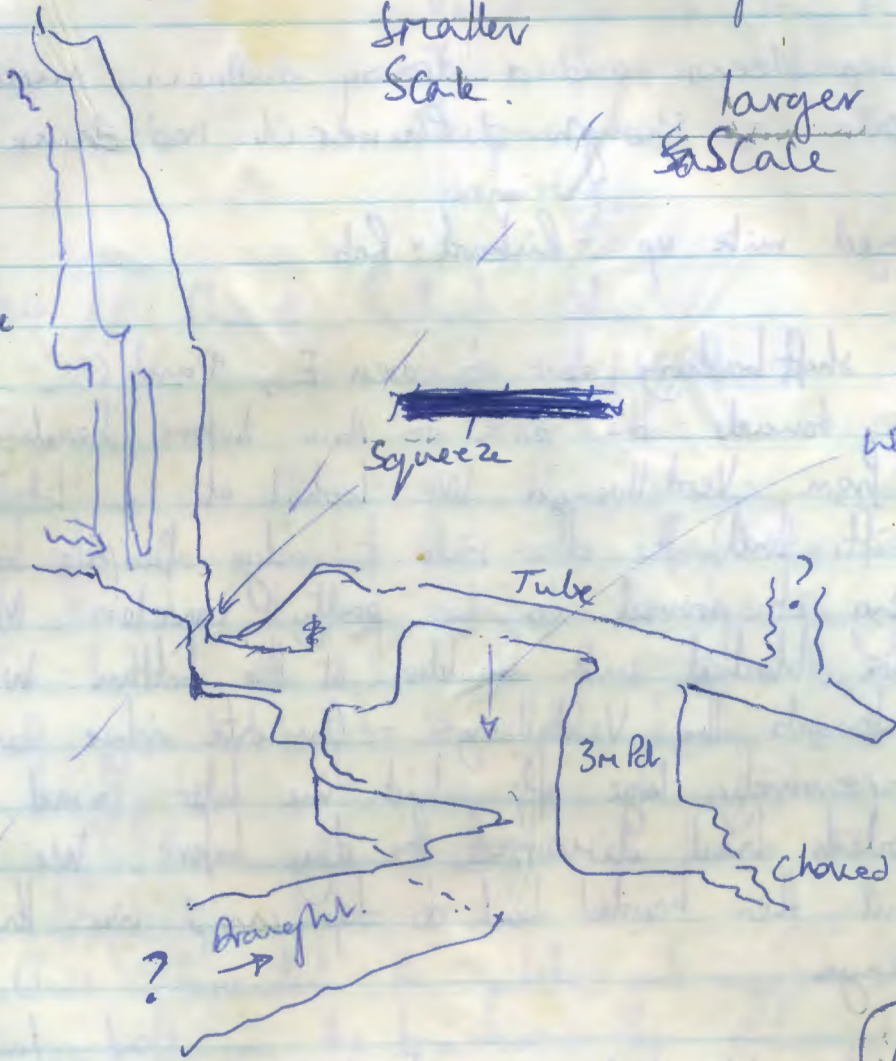 smaller
scale.
larger
Scale
?
Squeeze
Tube
?
3m Pd
Choked
Draught.
?